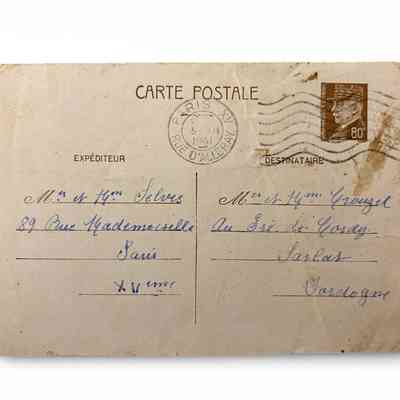 CARTE POSTALE
PARIS XV
RUE D'ALLERAY
80c
EXPÉDITEUR
DESTINATAIRE
Mr et Mme Selves
89 Rue Mademoiselle
Paris
XVème
Mr et Mme Crouzel
Au Pré de Cordy
Sarlat
Dordogne